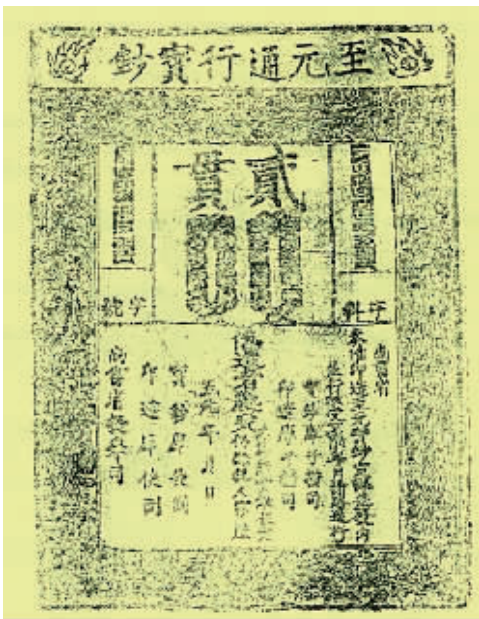 至元通行寳鈔
貳貫
字料
字號
尚書省
奏准印造至元寳鈔宣課差役內
並行收受不限年月諸路通行
寳鈔庫子攢司
印造庫子攢司
偽造者處死
至元 年 月 日
寳鈔庫使副
印造庫使副
尚書省提舉司